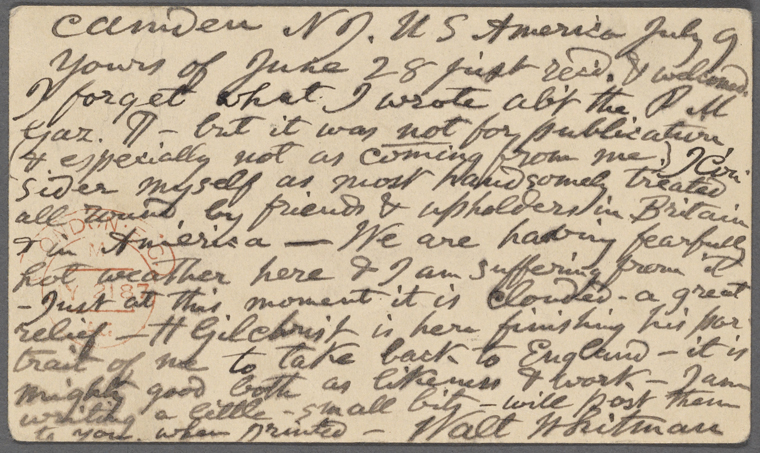 Camden N J. U S America July 9
Yours of June 28 just rec'd, & welcomed.
I forget what I wrote ab't the P M
Gaz. ¶ – but it was not for publication
(& especially not as coming from me.) I con-
sider myself as most handsomely treated
all round by friends & upholders in Britain
& in America — We are having fearfully
hot weather here & I am suffering from it
– Just at this moment it is clouded – a great
relief – H Gilchrist is here finishing his por-
trait of me to take back to England – it is
mighty good both as likeness & work – I am
writing a little – small bits – will post them
to you when printed – Walt Whitman
LONDON E.C
M
87